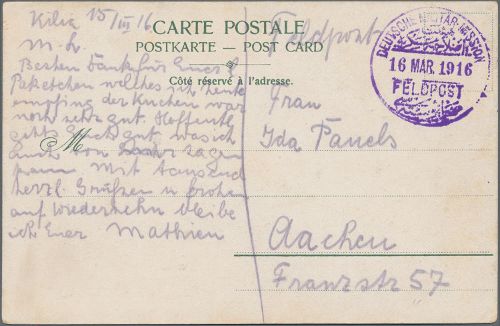 CARTE POSTALE
POSTKARTE — POST CARD
Côté réservé à l'adresse.
Feldpost
DEUTSCHE MILITÄR-MISSION
16 MAR. 1916
FELDPOST
Kilia 15/III 16
M. L.
Besten Dank für Euer
Paketchen welches ich heute
empfing der Kuchen war
noch sehr gut. Hoffentl
gehts Euch gut was ich
auch von sagen
kann. Mit tausend
herzl. Grüßen u frohen
auf wiedersehn bleibe
ich Euer Mathieu
M
Frau
Ida Pauels
Aachen
Franzstr 57